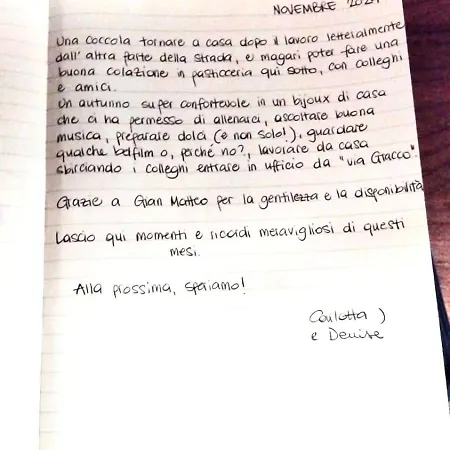 NOVEMBRE 202
Una coccola tornare a casa dopo il lavoro letteralmente
dall'altra parte della strada, e magari poter fare una
buona colazione in pasticceria qui sotto, con colleghi
e amici.
Un autunno super confortevole in un bijoux di casa
che ci ha permesso di allenarci, ascoltare buona
musica, preparare dolci (e non solo!), guardare
qualche bel film o, perché no?, lavorare da casa
sbirciando i colleghi entrare in ufficio da "via Gracco".
Grazie a Gian Matteo per la gentilezza e la disponibilità
Lascio qui momenti e ricordi meravigliosi di questi
mesi.
Alla prossima, speriamo!
Carlotta )
e Denise